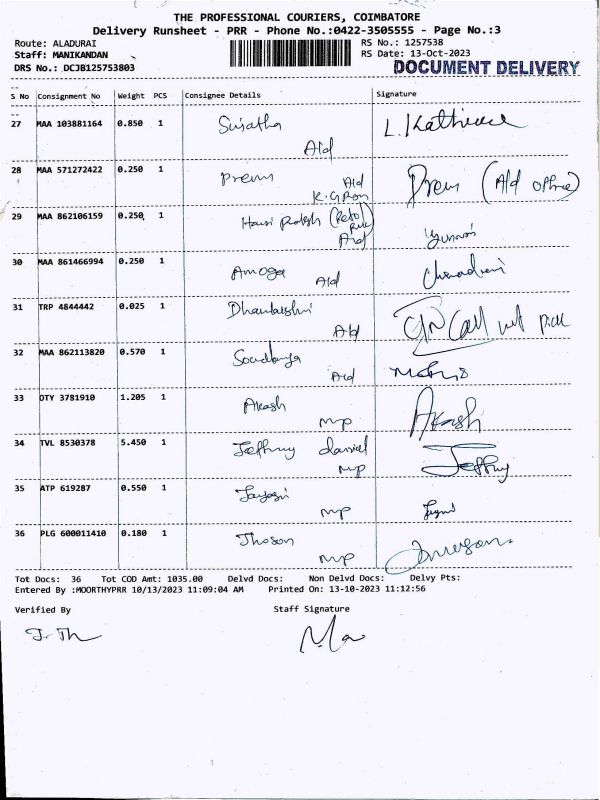 THE PROFESSIONAL COURIERS, COIMBATORE
Delivery Runsheet - PRR - Phone No.:0422-3505555 - Page No.:3
Route: ALADURAI RS No.: 1257538
Staff: MANIKANDAN RS Date: 13-Oct-2023
DRS No.: DCJB125753803 DOCUMENT DELIVERY
S No Consignment No Weight PCS Consignee Details Signature
27 MAA 103881164 0.850 1 Sujatha
Ald
28 MAA 571272422 0.250 1 Prem Ald Prem (Ald office)
29 MAA 862106159 0.250 1
Ald
30 MAA 861466994 0.250 1 Amoga Ald
31 TRP 4844442 0.025 1 Call not pick
Ald
32 MAA 862113820 0.570 1
Ald
33 DTY 3781910 1.205 1 Akash Akash
MP
34 TVL 8530378 5.450 1 Jeffruy daniel Jeffruy
MP
35 ATP 619287 0.550 1
MP
36 PLG 600011410 0.180 1 Jhoson
MP
Tot Docs: 36 Tot COD Amt: 1035.00 Delvd Docs: Non Delvd Docs: Delvy Pts:
Entered By :MOORTHYPRR 10/13/2023 11:09:04 AM Printed On: 13-10-2023 11:12:56
Verified By Staff Signature